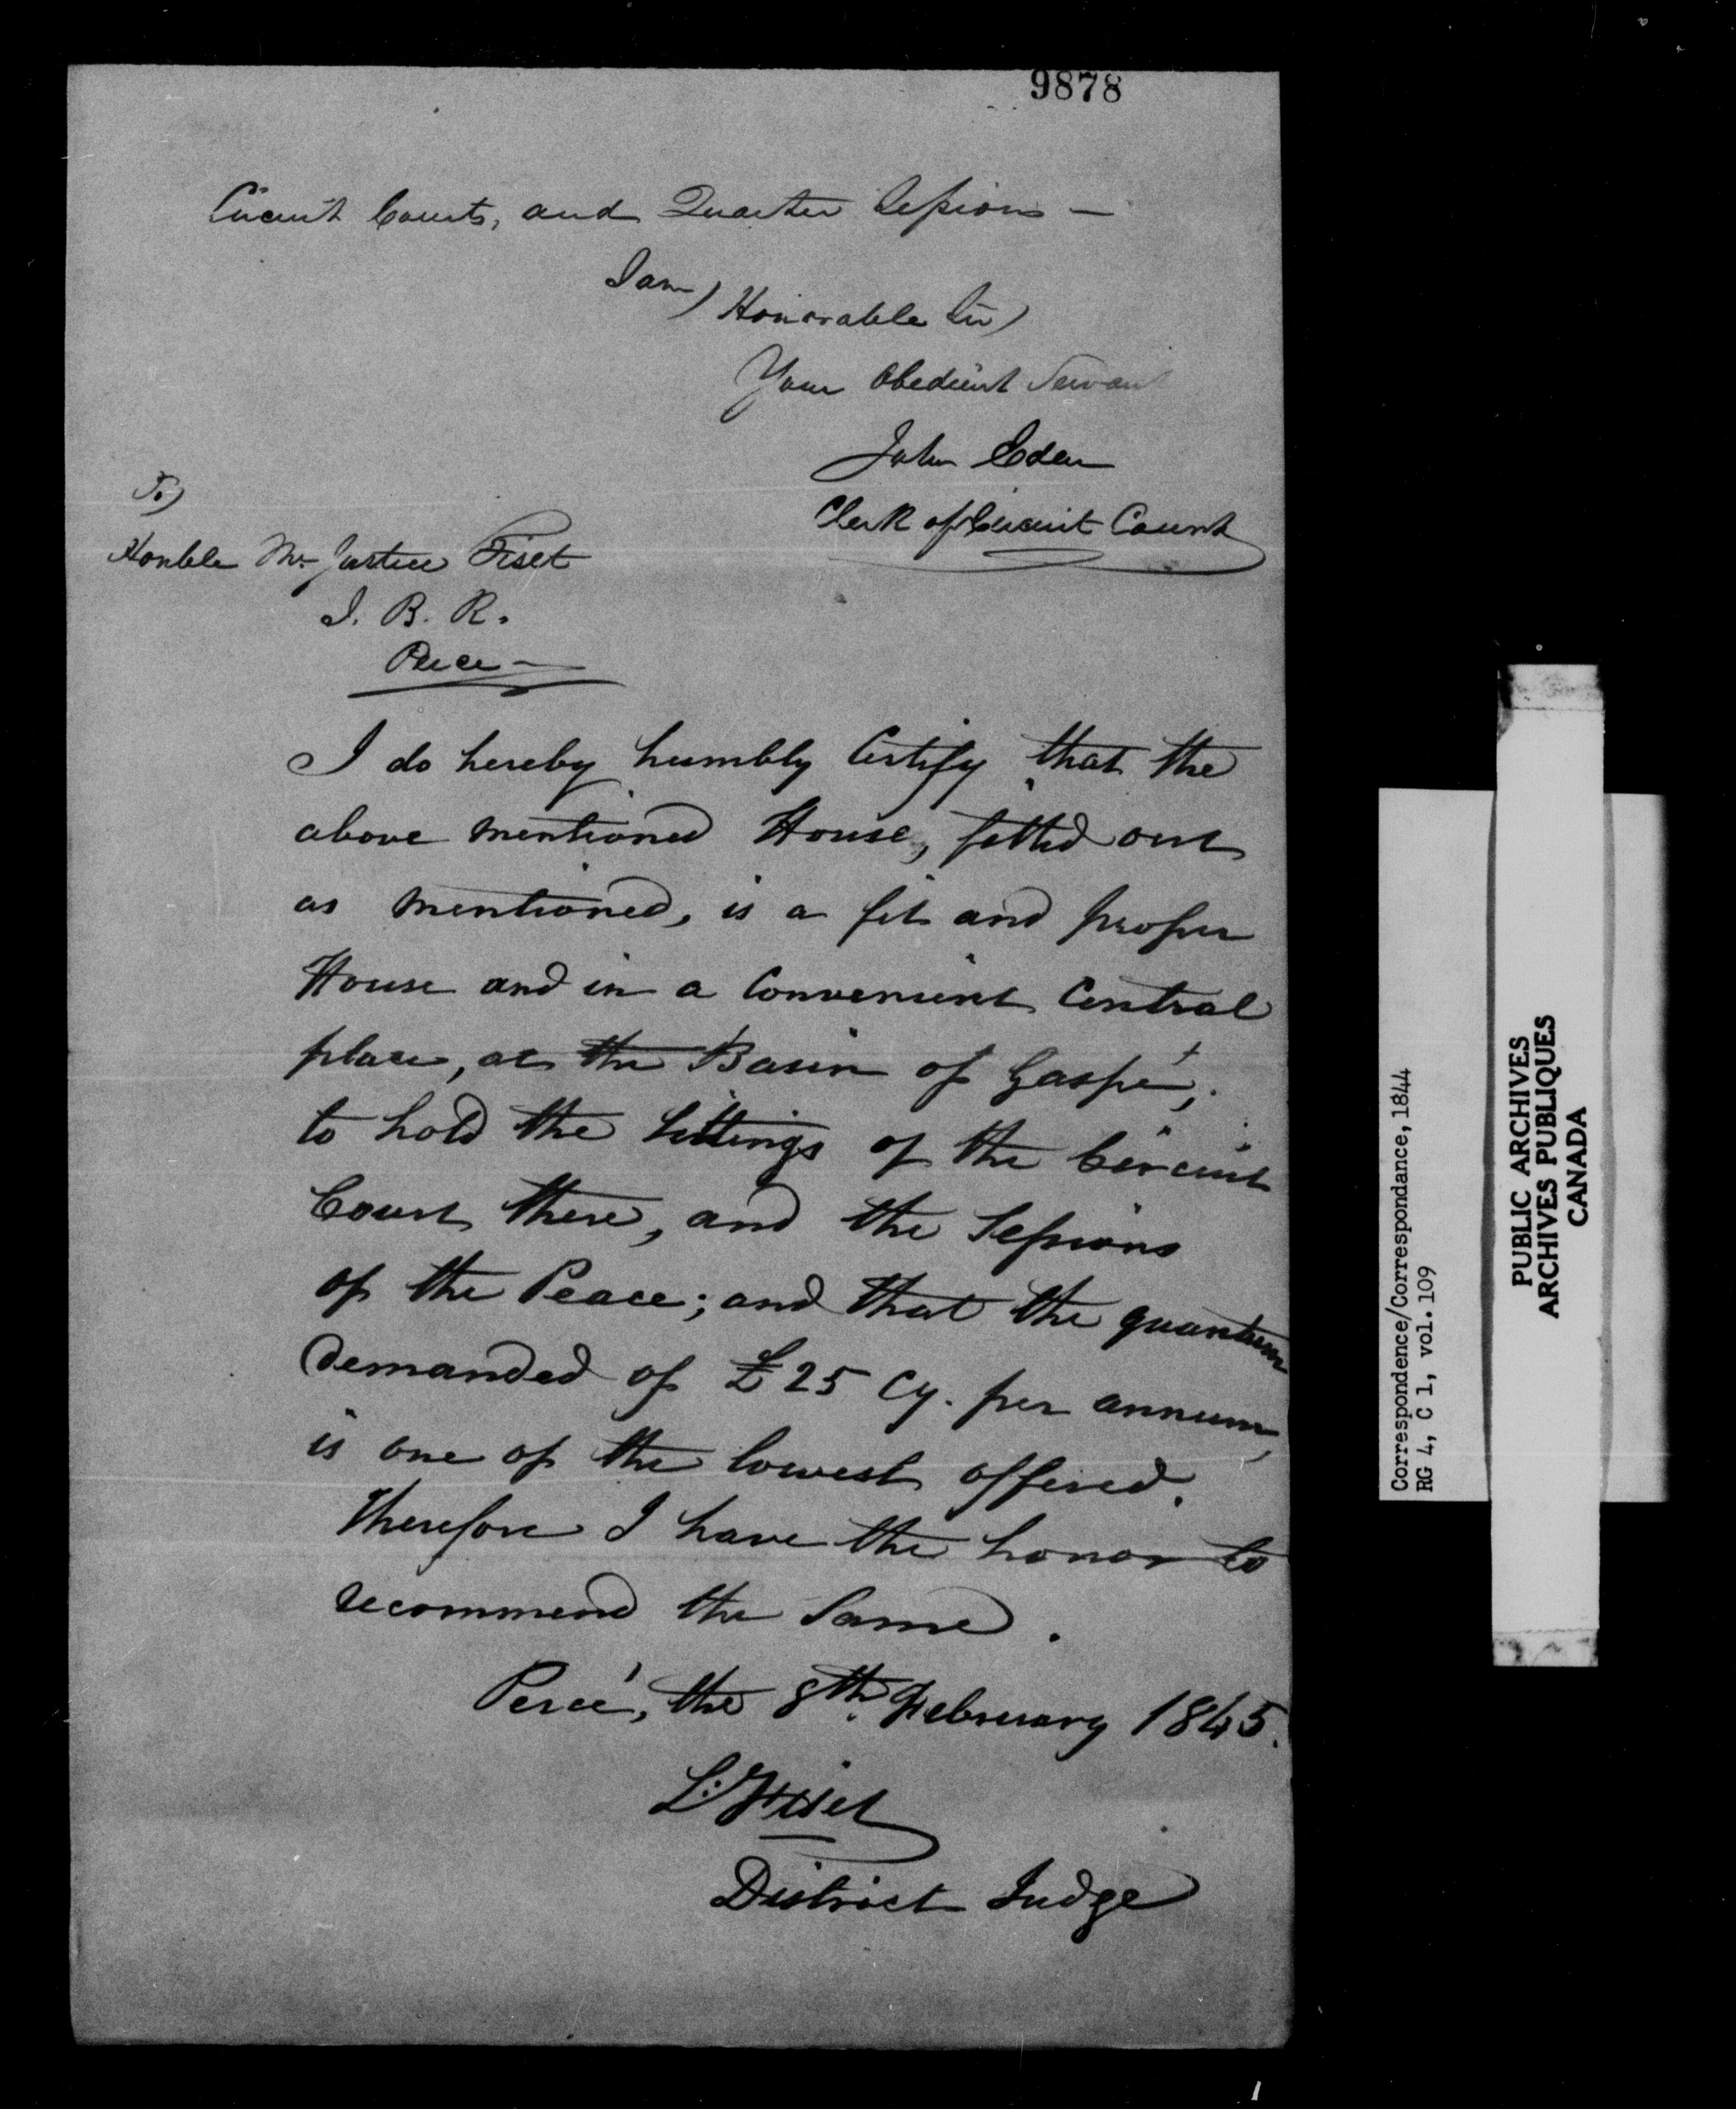 9878
Circuit Courts, and Quarter Sessions —
I am,
Honorable Sir,
Your Obedient Servant
John Eden
Clerk of Circuit Court
To,
Honble Mr. Justice Fiset
J. B. R.
Perce —
I do hereby humbly Certify that the
above mentioned House, fitted out
as mentioned, is a fit and proper
House and in a Convenient Central
place, at the Basin of Gaspé,
to hold the Sittings of the Circuit
Court there, and the Sessions
of the Peace; and that the quantum
demanded of £25 Cy. per annum,
is one of the lowest offered.
Therefore I have the honor to
recommend the Same.
Percé, the 8th. February 1845.
L: Fiset
District Judge
Correspondence/Correspondance, 1844
RG 4, C 1, vol. 109
PUBLIC ARCHIVES
ARCHIVES PUBLIQUES
CANADA